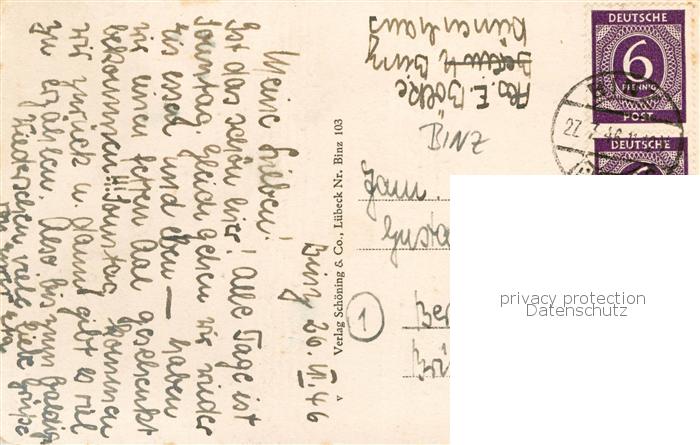 Binz 26. VI. 46
Meine Lieben!
Ist das schön hier! Alle Tage ist
Sonntag. Gleich gehen wir wieder
Eis essen und eben — haben
wir einen fetten Aal geschenkt
bekommen!! Sonntag kommen
wir zurück u. dann gibt es viel
zu erzählen. Also bis zum baldigen
Wiedersehen viele liebe Grüße
Abs. E. Bölke
Berlin Binz
Dünenhaus
BINZ
Verlag Schöning & Co., Lübeck Nr. Binz 103
v
DEUTSCHE
6
PFENNIG
POST
DEUTSCHE
27.7.46.11
Fam.
Gusta
1
Ber
privacy protection
Datenschutz